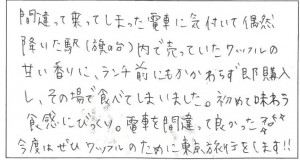 間違って乗ってしまった電車に気付いて偶然
降りた駅(旗の台)内で売っていたワッフルの
甘い香りに、ランチ前にもかかわらず即購入
し、その場で食べてしまいました。初めて味わう
食感にびっくり。電車を間違って良かった
今度はぜひワッフルのために東京旅行をします!!